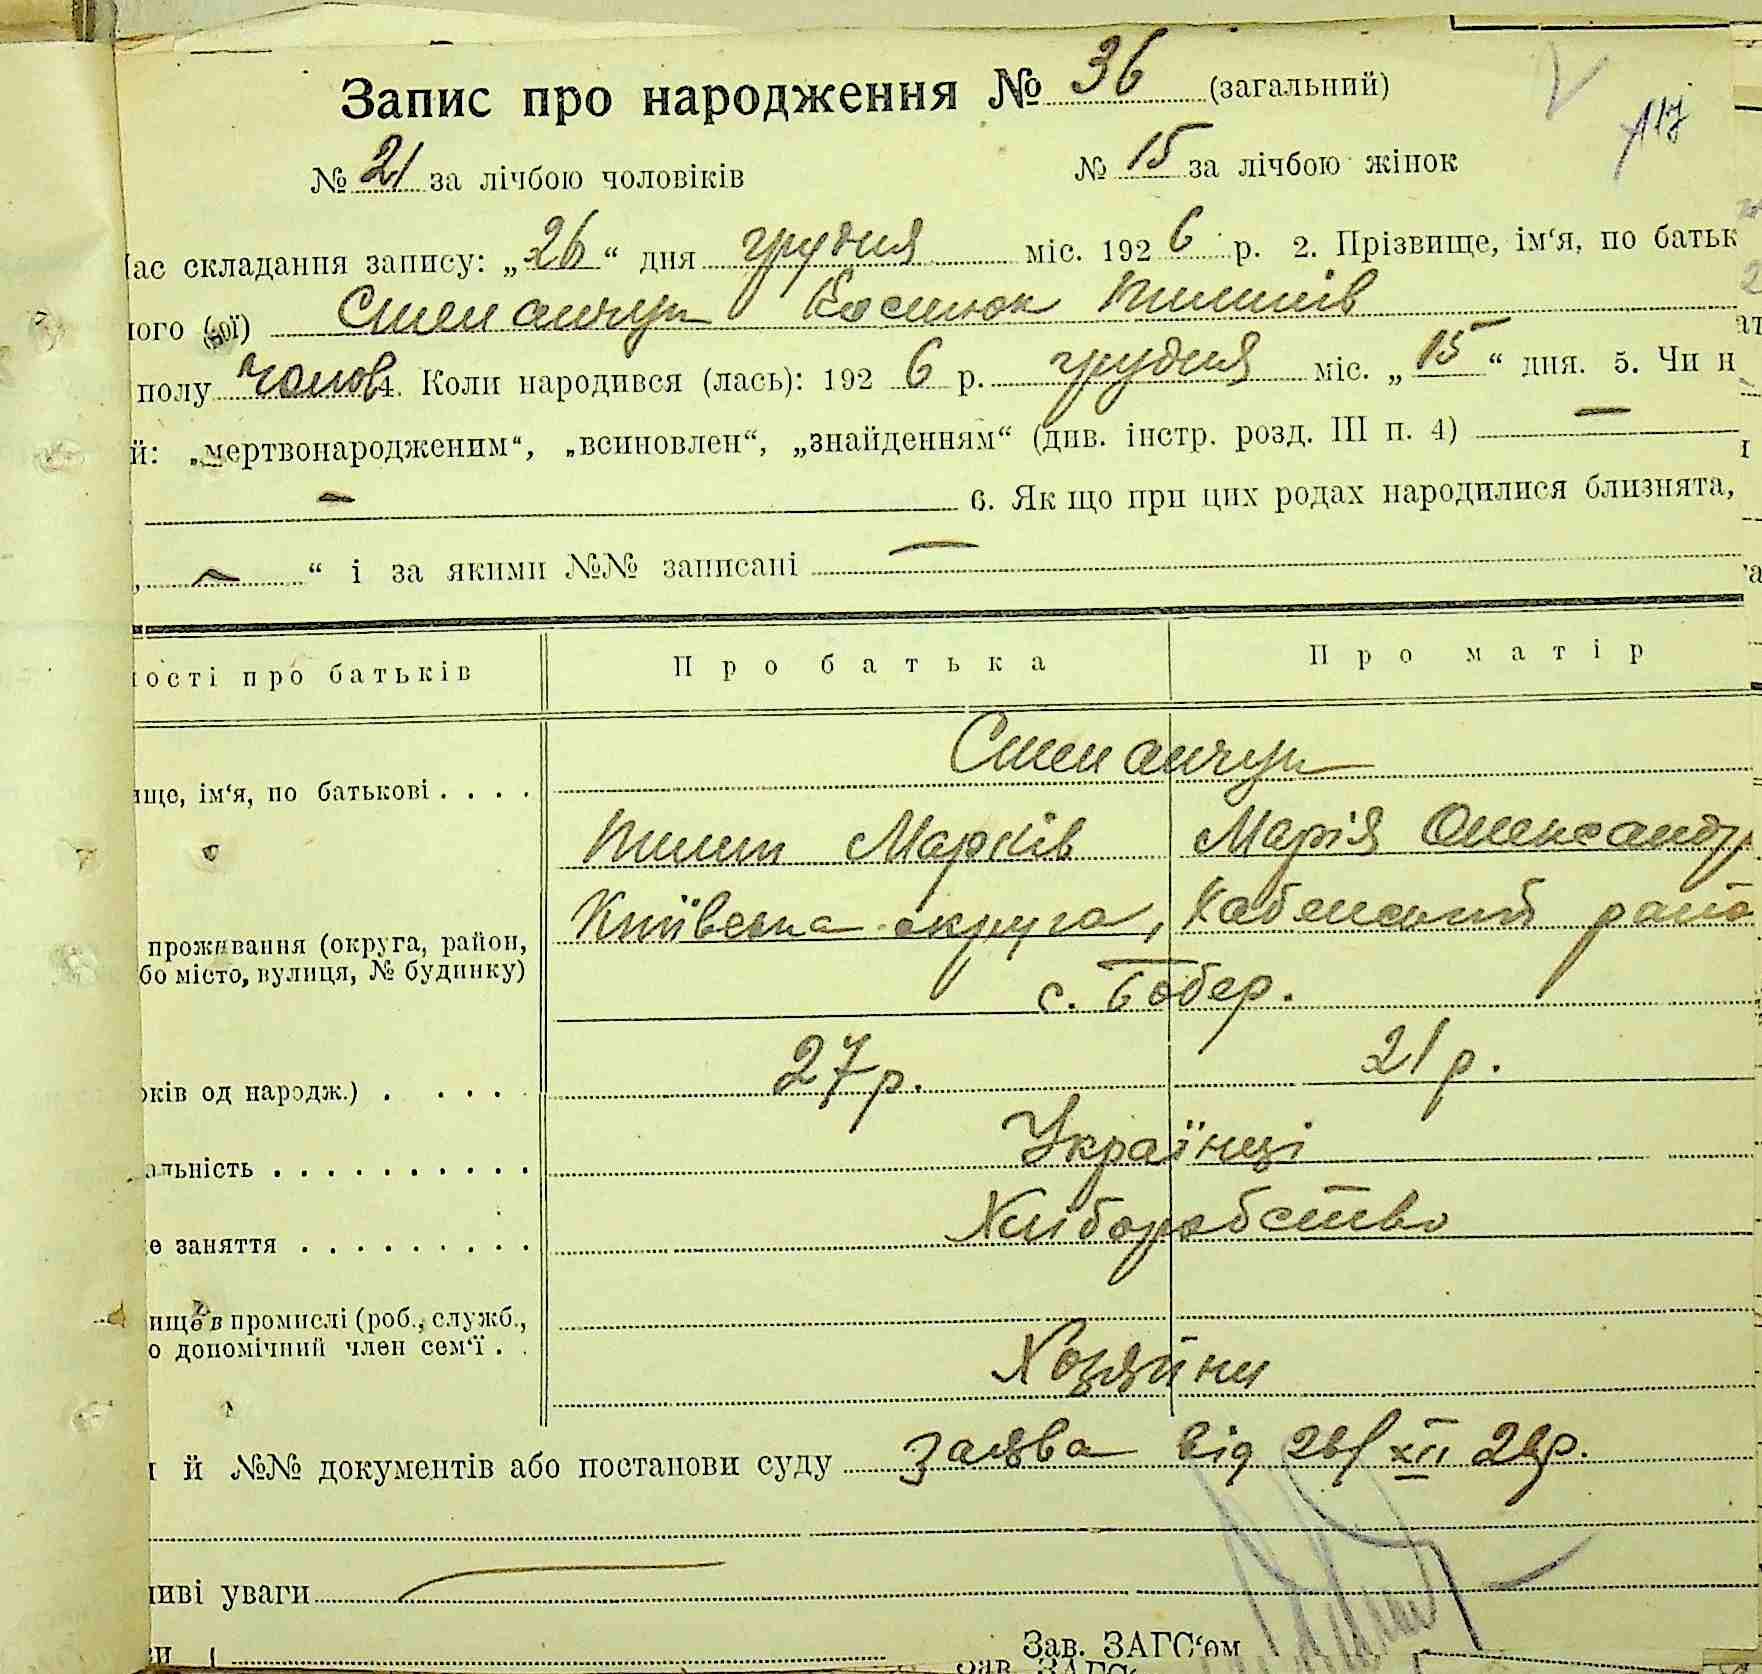 Запис про народження № 36 (загальний)
№ 21 за лічбою чоловіків № 15 за лічбою жінок
час складання запису: „26“ дня грудня міс. 1926 р. 2. Прізвище, ім‘я, по батьк
ного (ної) Степанчук Костюк Пилипів
полу чолов. 4. Коли народився (лась): 1926 р. грудня міс. „15“ дня. 5. Чи н
й: „мертвонародженим“, „всиновлен“, „знайденням“ (див. інстр. розд. III п. 4) —
— 6. Як що при цих родах народилися близнята,
, — “ і за якими №№ записані —
ності про батьків Про батька Про матір
Степанчук
ище, ім‘я, по батькові . . . .
Пилип Марків Марія Олександр
Київська округа, Хабенський райо
проживання (округа, район,
бо місто, вулиця, № будинку)
с. Бобер.
27 р. 21 р.
оків од народж.) . . . . .
Українці
альність . . . . . . . . . .
Хліборобство
е заняття . . . . . . . . .
ище в промислі (роб., служб.,
о допомічний член сем‘ї . .
Хозяйни
и й №№ документів або постанови суду заява від 26/XII 26р.
ливі уваги
Зав. ЗАГС‘ом